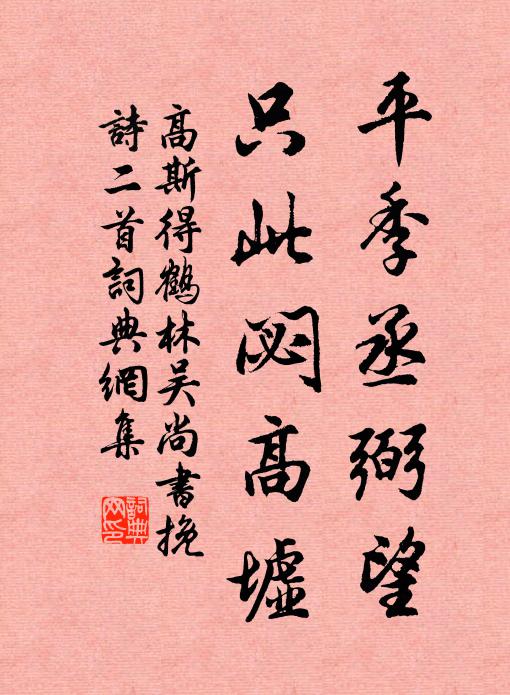 平季丞弼望
只此閟高墟
高斯得鶴林吴尚書挽
詩二首詞典網集
詞典网印